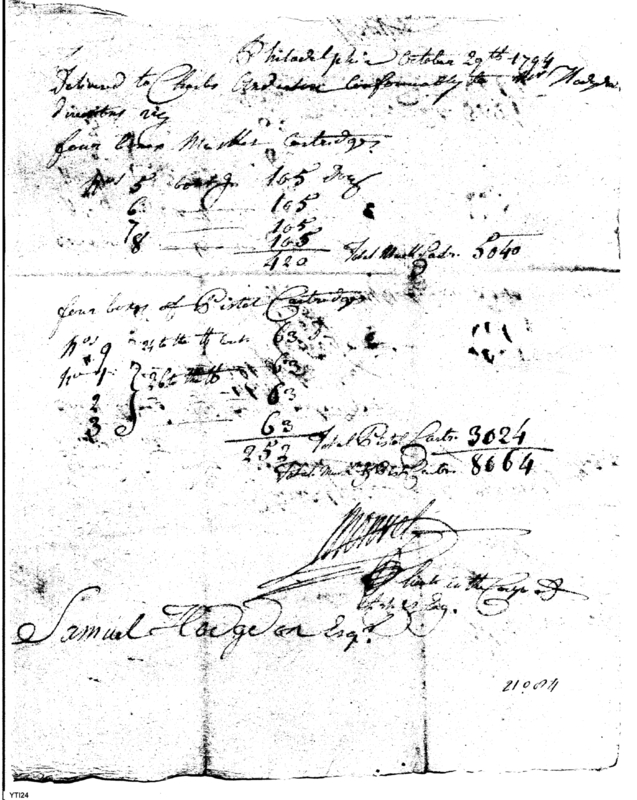 Philadelphia October 29th 1794
Delivered to Charles Anderson Conformably to Mr Hodgdon
directions viz
four boxes Musket Cartridges
Nos 5 105 Doz
6 105
7 105
8 105
420 Total Musk Cartr. 5040
four boxes of Pistol Cartridges
Nos 9 24 to the lb 63
No 1 26 to the lb 63
2 63
3 63
252 Total Pistol Cartr. 3024
Total Musk & Pistol Cartr. 8064
in the Corps of
Samuel Hodgdon Esqr
21084
YTI24